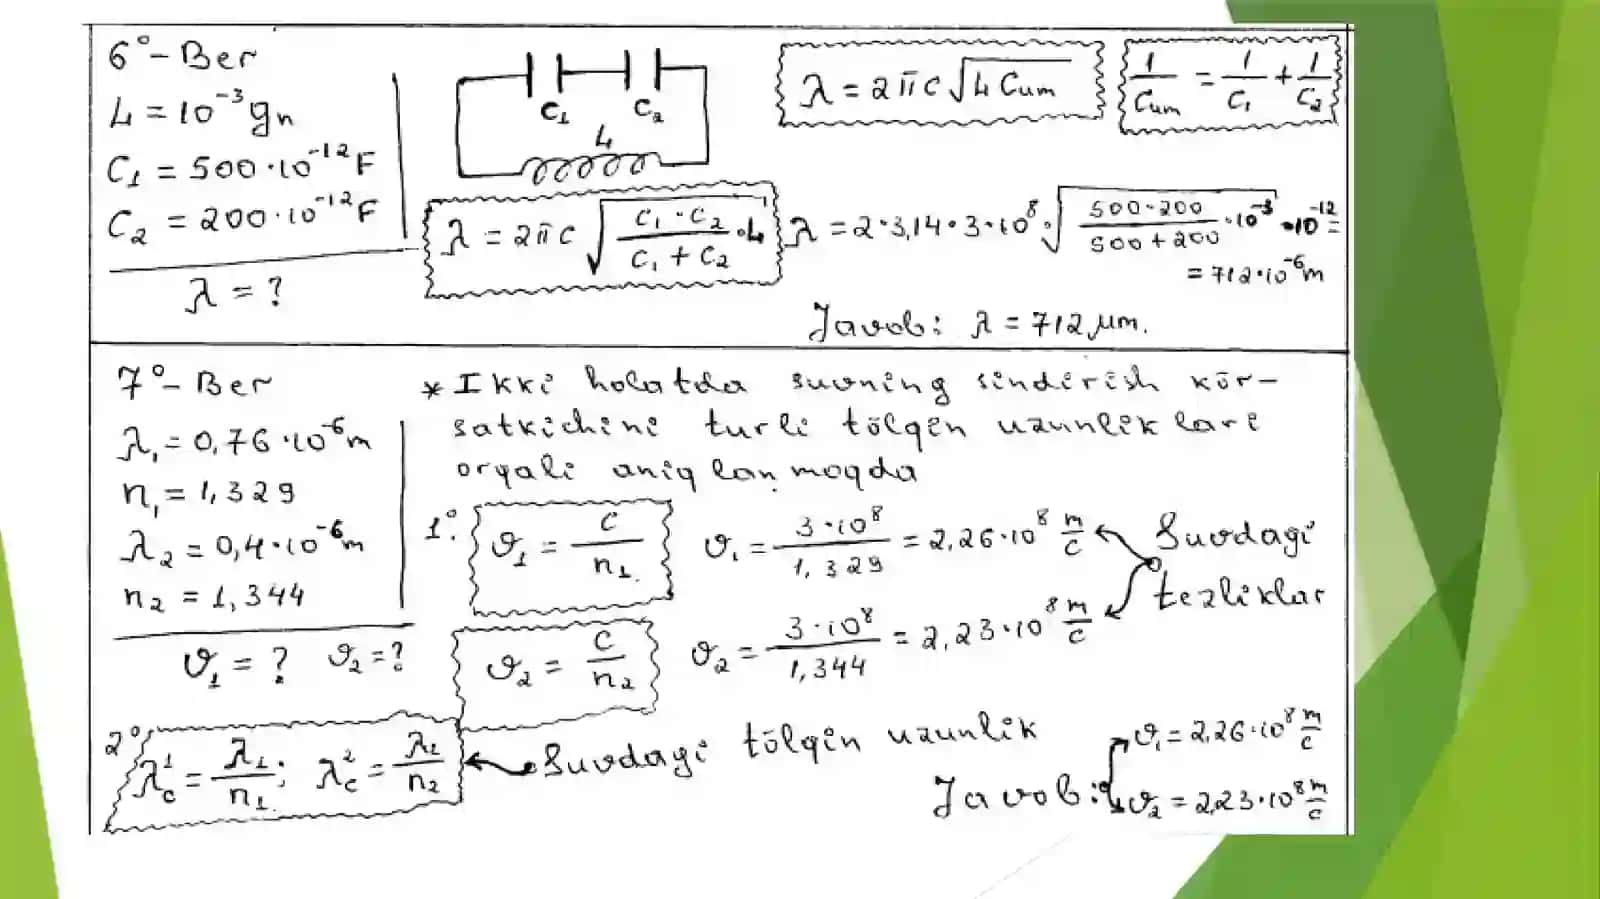 6°-Ber
L = 10⁻³ gn
C₁ = 500·10⁻¹² F
C₂ = 200·10⁻¹² F
λ = ?
C₁ C₂
L
λ = 2πc√(L Cum)
1/Cum = 1/C₁ + 1/C₂
λ = 2πc√(C₁·C₂/(C₁+C₂)·L)
λ = 2·3,14·3·10⁸·√(500·200/(500+200)·10⁻³·10⁻¹²) =
= 712·10⁻⁶ m
Javob: λ = 712 μm.
7°-Ber
λ₁ = 0,76·10⁻⁶ m
n₁ = 1,329
λ₂ = 0,4·10⁻⁶ m
n₂ = 1,344
υ₁ = ? υ₂ = ?
* Ikki holatda suvning sindirish kōr-
satkichini turli tōlqin uzunliklari
orqali aniqlanmoqda
1°. υ₁ = c/n₁ υ₁ = 3·10⁸/1,329 = 2,26·10⁸ m/c
Suvdagi
tezliklar
υ₂ = c/n₂ υ₂ = 3·10⁸/1,344 = 2,23·10⁸ m/c
2° λc¹ = λ₁/n₁; λc² = λ₂/n₂ Suvdagi tōlqin uzunlik
Javob: υ₁ = 2,26·10⁸ m/c
υ₂ = 2,23·10⁸ m/c